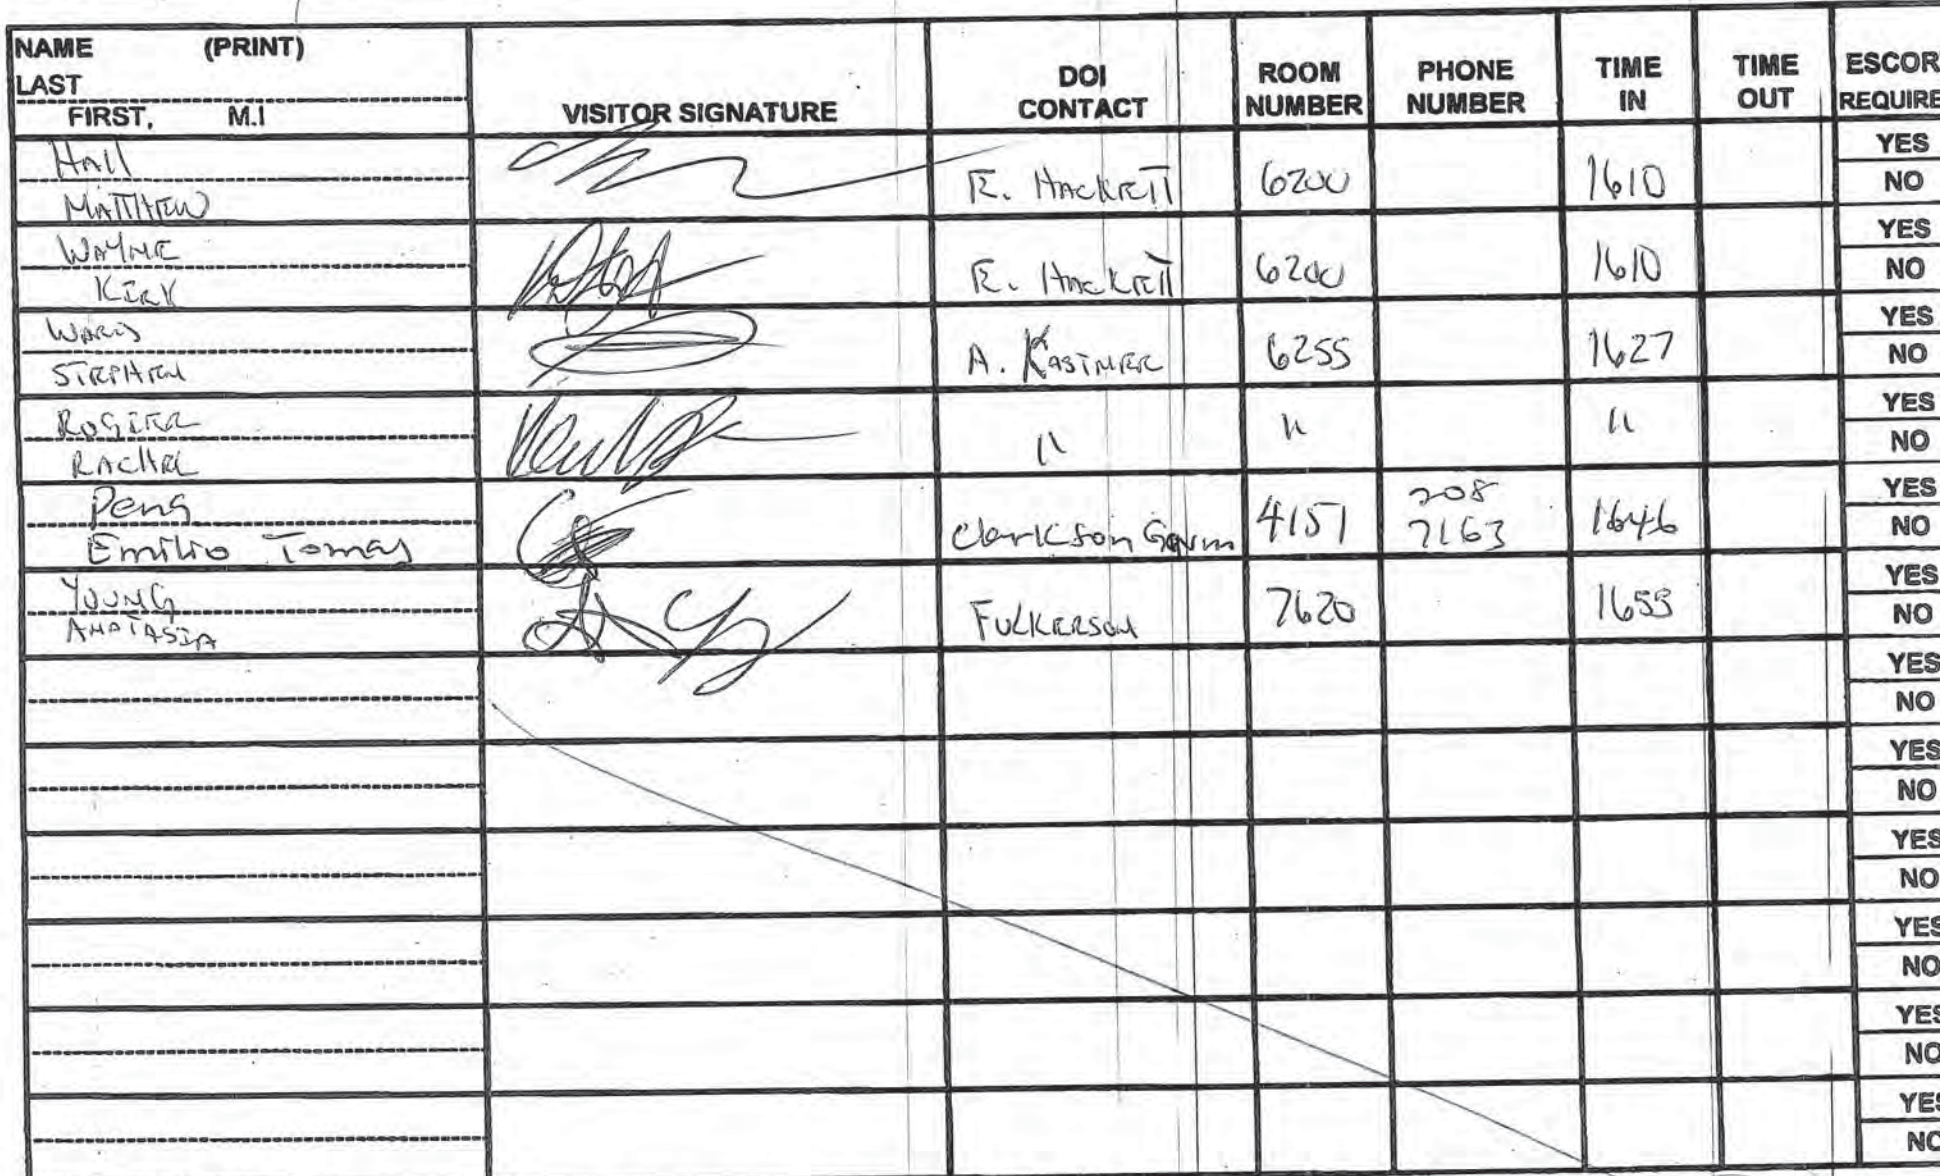 NAME (PRINT)
LAST
FIRST, M.I
VISITOR SIGNATURE
DOI CONTACT
ROOM NUMBER
PHONE NUMBER
TIME IN
TIME OUT
ESCOR
REQUIRE
Hall
MATTHEW
E. HACKETT 6200 1610
YES
NO
WAYNE
KIRK
E. HACKETT 6200 1610
YES
NO
STEPHEN
A. KASTNER 6255 1627
YES
NO
ROGIER
RACHEL
" " "
YES
NO
Peng
Emilio Tomas
Clarkson 4151 208 7163 1646
YES
NO
YOUNG
ANATASIA
FULKERSON 7620 1655
YES
NO
YES
NO
YES
NO
YES
NO
YES
NO
YES
NO
YES
NO